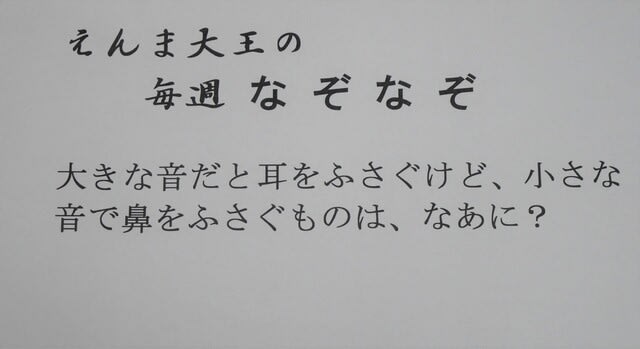 えんま大王の
毎週 なぞなぞ
大きな音だと耳をふさぐけど、小さな
音で鼻をふさぐものは、なあに？